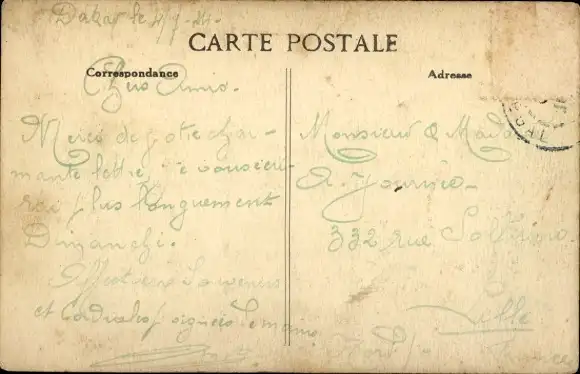 Dakar le 4/7-24-
CARTE POSTALE
Correspondance
Adresse
Chers Amis.
Merci de votre char-
mante lettre, je vous écri-
rai plus longuement
Dimanche.
Affectueux Souvenirs
et Cordiales poignées de mains
Monsieur & Mada
332 rue Solférino
Lille
Nord
France